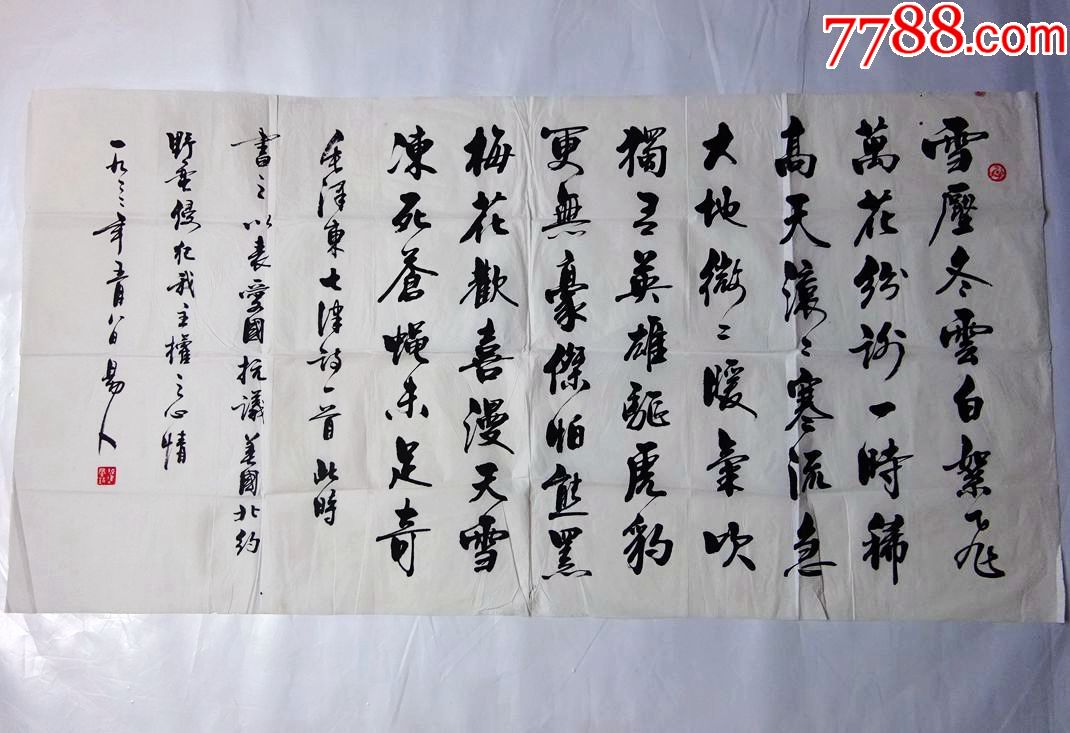 7788.com
雪壓冬雲白絮飛
萬花紛謝一時稀
高天滾〻寒流急
大地微〻暖氣吹
獨有英雄驅虎豹
更無豪傑怕熊羆
梅花歡喜漫天雪
凍死蒼蝇未足奇
毛泽東七律詩一首 此時
書之以表愛國抗議美國北約
野蛮侵犯我主權之心情
一九〻〻年五月八日 易人